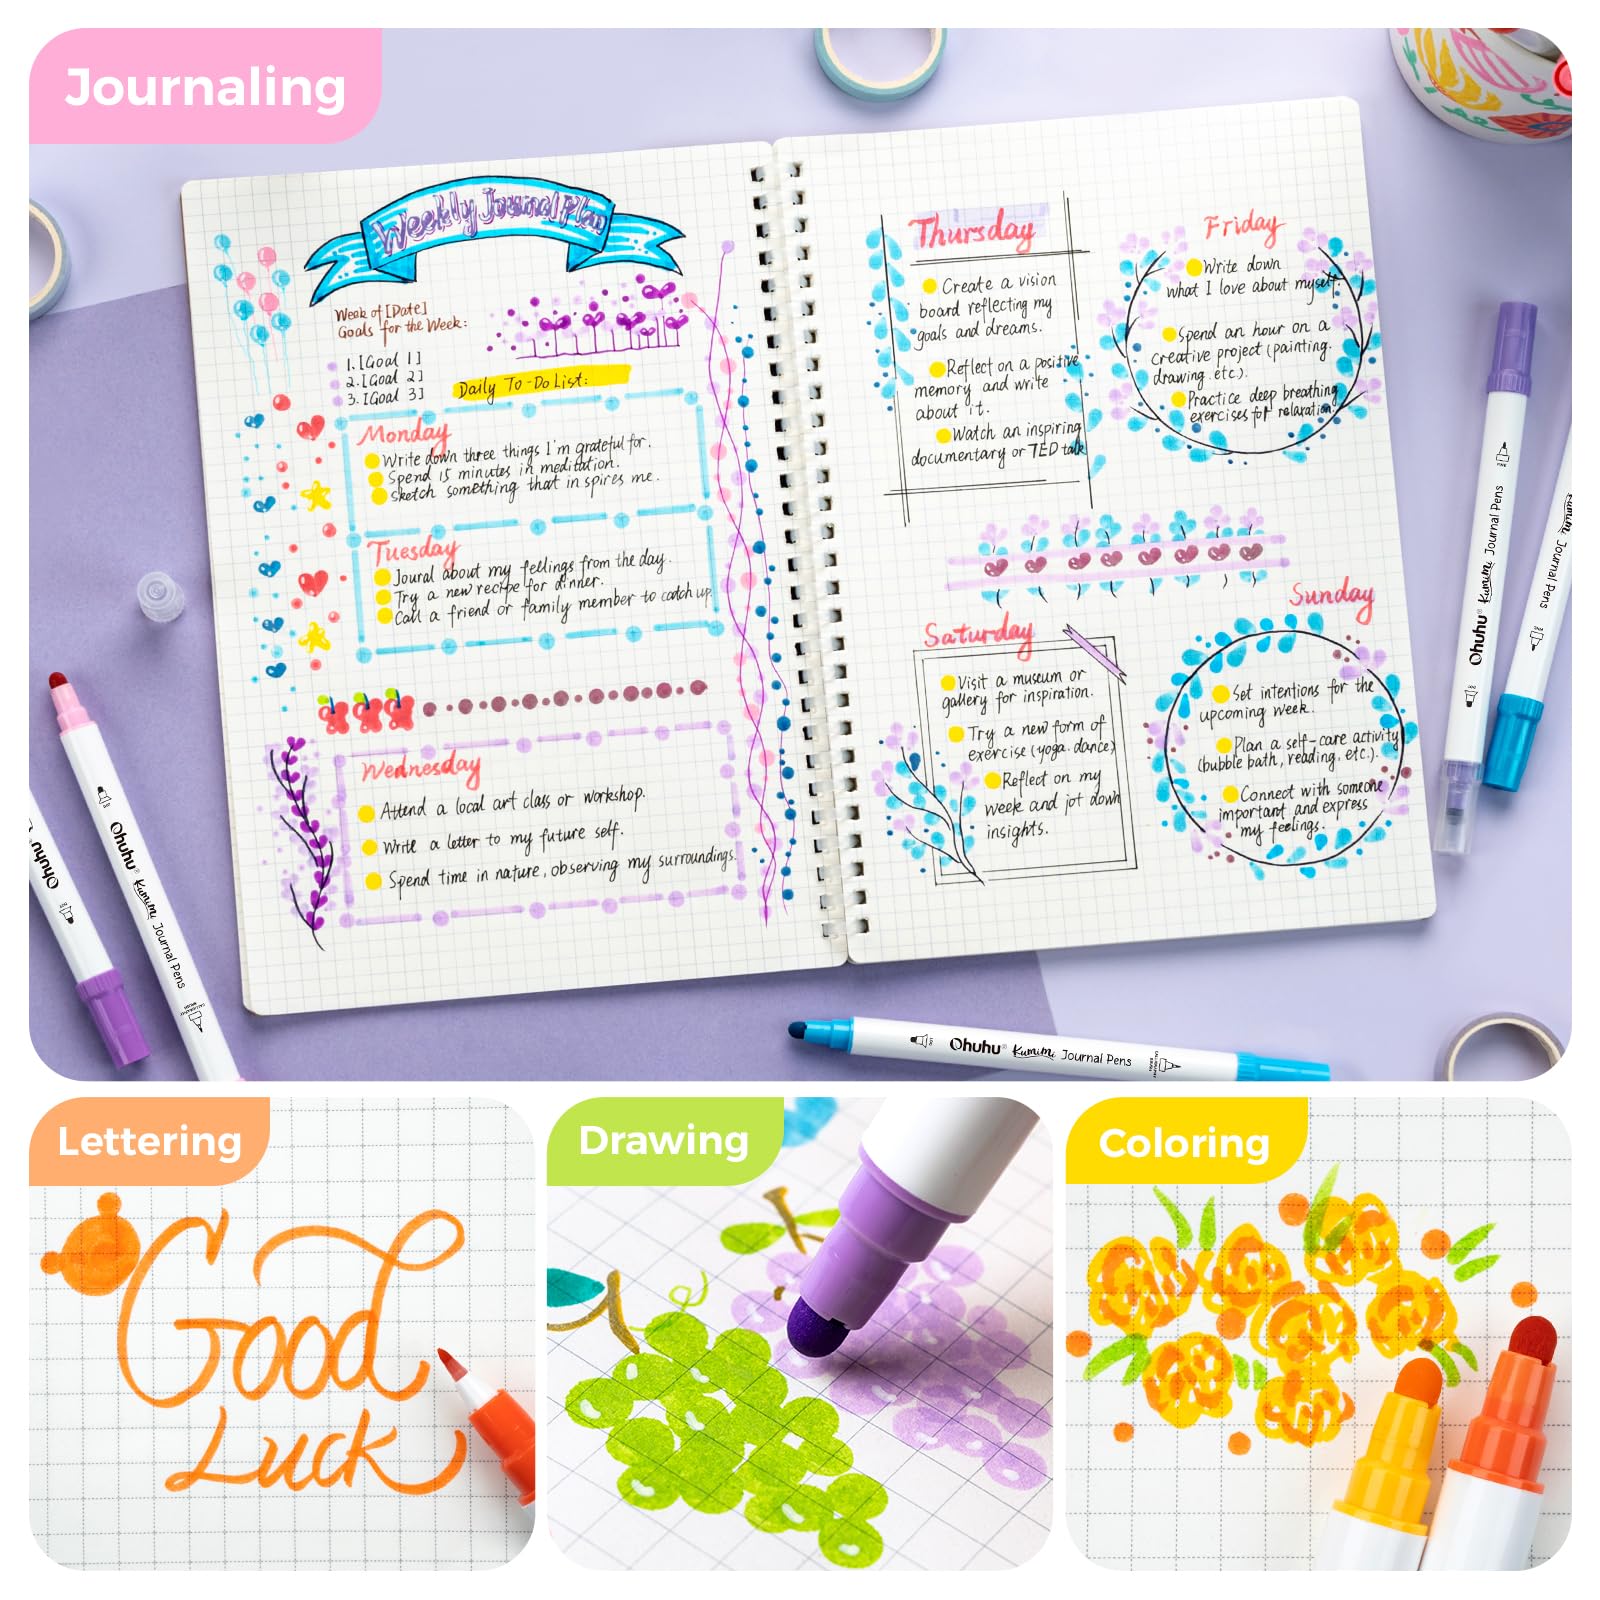 Journaling
Weekly Journal Plan
Week of [Date]
Goals for the Week:
1. [Goal 1]
2. [Goal 2]
3. [Goal 3]
Daily To-Do List:
Monday
Write down three things I'm grateful for.
Spend 15 minutes in meditation.
Sketch something that inspires me.
Tuesday
Joural about my feelings from the day.
Try a new recipe for dinner.
Call a friend or family member to catch up.
Wednesday
Attend a local art class or workshop.
Write a letter to my future self.
Spend time in nature, observing my surroundings.
Thursday
Create a vision
board reflecting my
goals and dreams.
Reflect on a positive
memory and write
about it.
Watch an inspiring
documentary or TED talk
Friday
Write down
what I love about myself.
Spend an hour on a
creative project (painting.
drawing. etc.).
Practice deep breathing
exercises for relaxation.
Saturday
Visit a museum or
gallery for inspiration.
Try a new form of
exercise (yoga. dance)
Reflect on my
week and jot down
insights.
Sunday
Set intentions for the
upcoming week.
Plan a self-care activity
(bubble bath, reading, etc.).
Connect with someone
important and express
my feelings.
Ohuhu
DOT
Ohuhu® Kumimi Journal Pens
CALLIGRAPHY BRUSH
DOT Ohuhu® Kumimi Journal Pens CALLIGRAPHY BRUSH
DOT Ohuhu® Kumimi Journal Pens FINE
Kumimi Journal Pens
FINE
Lettering
Good
Luck
Drawing
Coloring